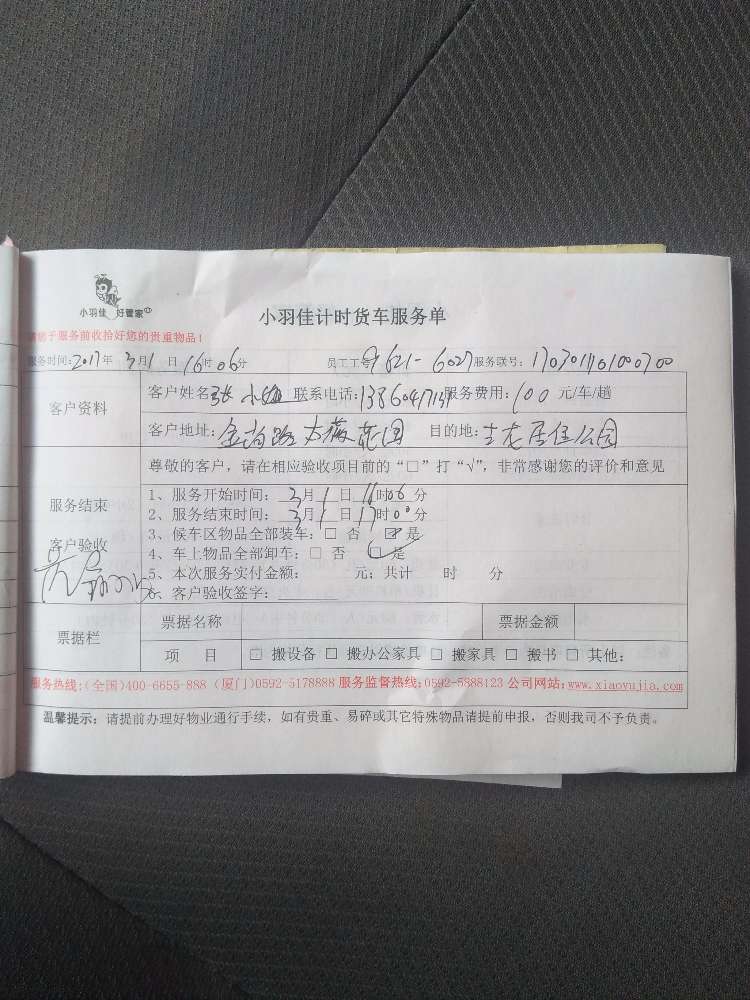 小羽佳 好管家
小羽佳计时货车服务单
请您于服务前收拾好您的贵重物品！
服务时间：2017年 3月1日 16时06分 员工工号 621-6027 服务联号：
客户资料
客户姓名 张小 联系电话： 服务费用：100 元/车/趟
客户地址：金尚路 花园 目的地： 居住公园
尊敬的客户，请在相应验收项目前的“□”打“√”，非常感谢您的评价和意见
服务结束
客户验收
1、服务开始时间： 3月1日16时06分
2、服务结束时间： 3月1日17时00分
3、候车区物品全部装车：□ 否 ☑ 是
4、车上物品全部卸车：□ 否 ☑ 是
5、本次服务实付金额： 元；共计 时 分
6、客户验收签字：
票据栏
票据名称 票据金额
项 目 □ 搬设备 □ 搬办公家具 □ 搬家具 □ 搬书 □ 其他：
服务热线：(全国)400-6655-888 (厦门)0592-5178888 服务监督热线：0592-5888123 公司网站：www.xiaoyujia.com
温馨提示：请提前办理好物业通行手续，如有贵重、易碎或其它特殊物品请提前申报，否则我司不予负责。